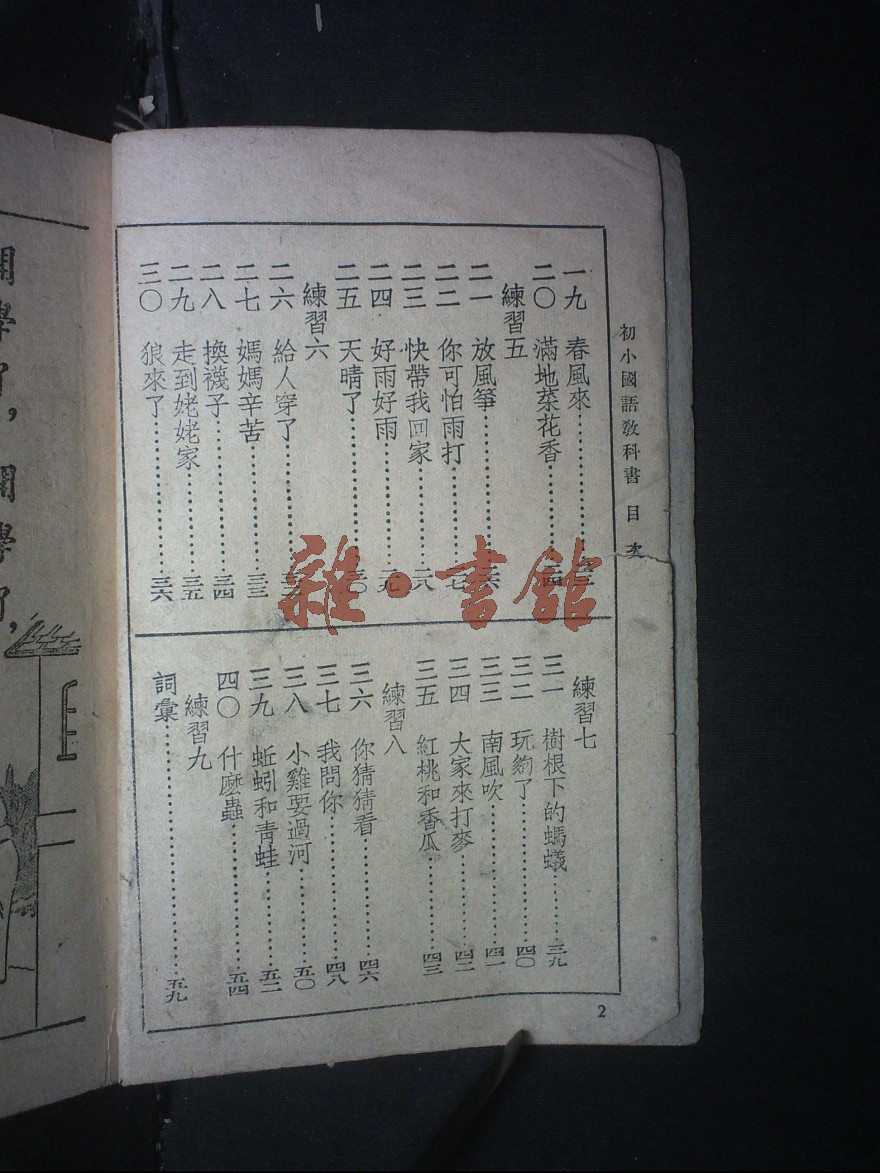 初小國語教科書 目次
一九 春風來……二三
二〇 滿地菜花香……二四
練習五
二一 放風箏……二六
二二 你可怕雨打……二七
二三 快帶我回家……二八
二四 好雨好雨……二九
二五 天晴了……三〇
練習六
二六 給人穿了……
二七 媽媽辛苦……三三
二八 換襪子……三四
二九 走到姥姥家……三五
三〇 狼來了……三六
練習七
三一 樹根下的螞蟻……三九
三二 玩夠了……四〇
三三 南風吹……四一
三四 大家來打麥……四二
三五 紅桃和香瓜……四三
練習八
三六 你猜猜看……四六
三七 我問你……四八
三八 小雞要過河……五〇
三九 蚯蚓和青蛙……五二
四〇 什麼蟲……五四
練習九
詞彙……五九
2
開學了，開學了，
雜·書館